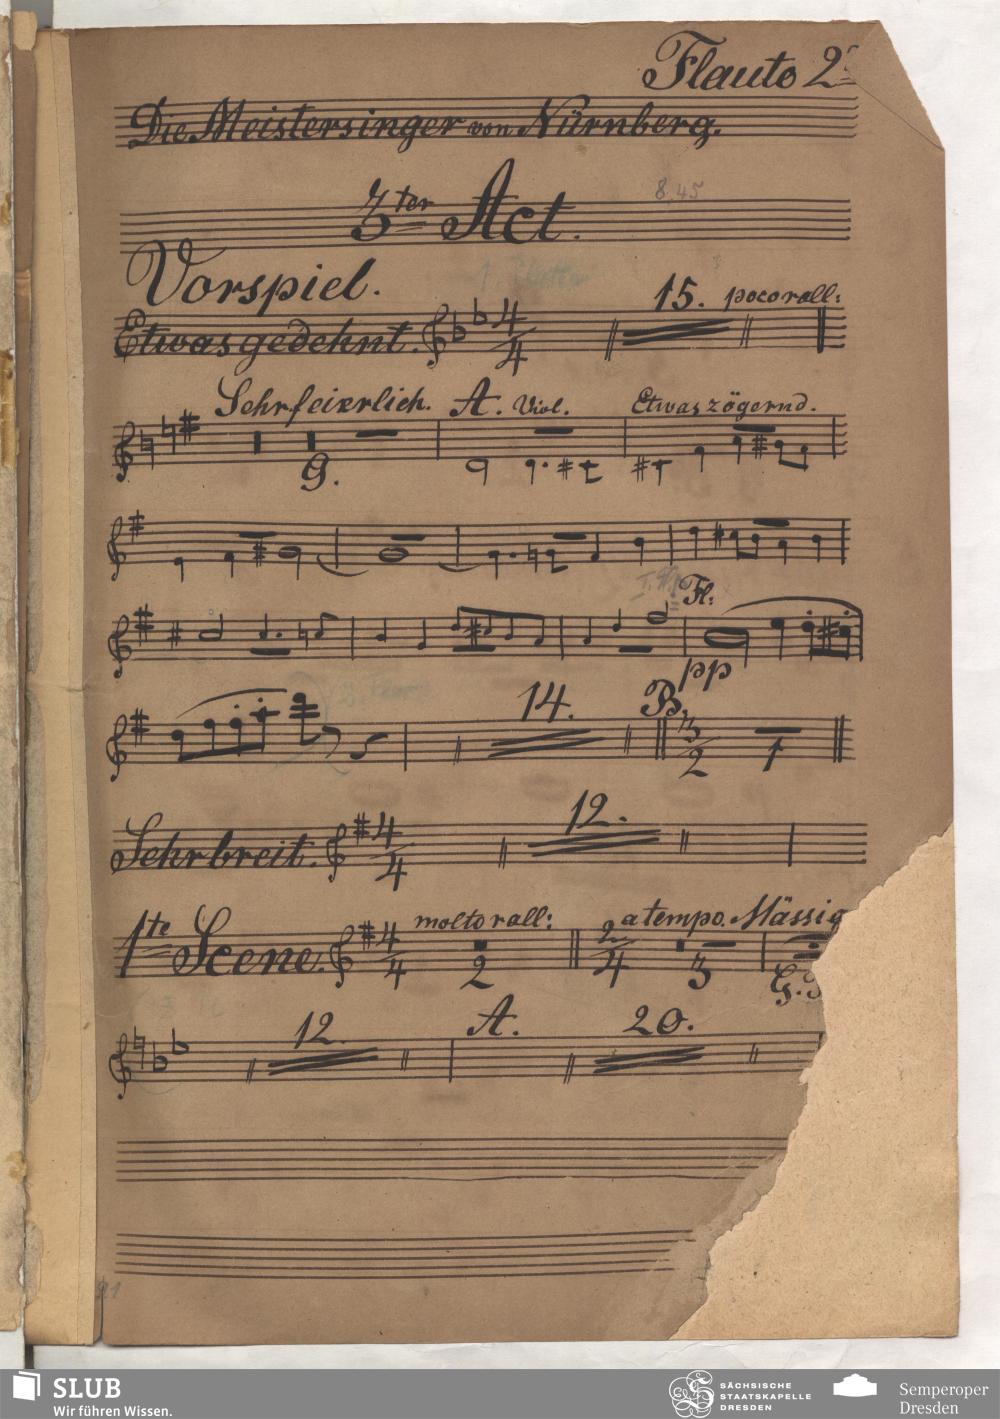 Flauto 2º
Die Meistersinger von Nürnberg.
3ter Act.
8,45
Vorspiel.
15. poco rall:
Etwas gedehnt. 4/4
Sehr feierlich. A. Viol. Etwas zögernd.
9.
Fl:
pp
14. B. 3/2 1
12.
Sehr breit. 4/4
molto rall: a tempo. Mässig
1te Scene. 4/4 2 2/4 3
12. A. 20.
91
SLUB
Wir führen Wissen.
SÄCHSISCHE
STAATSKAPELLE
DRESDEN
Semperoper
Dresden